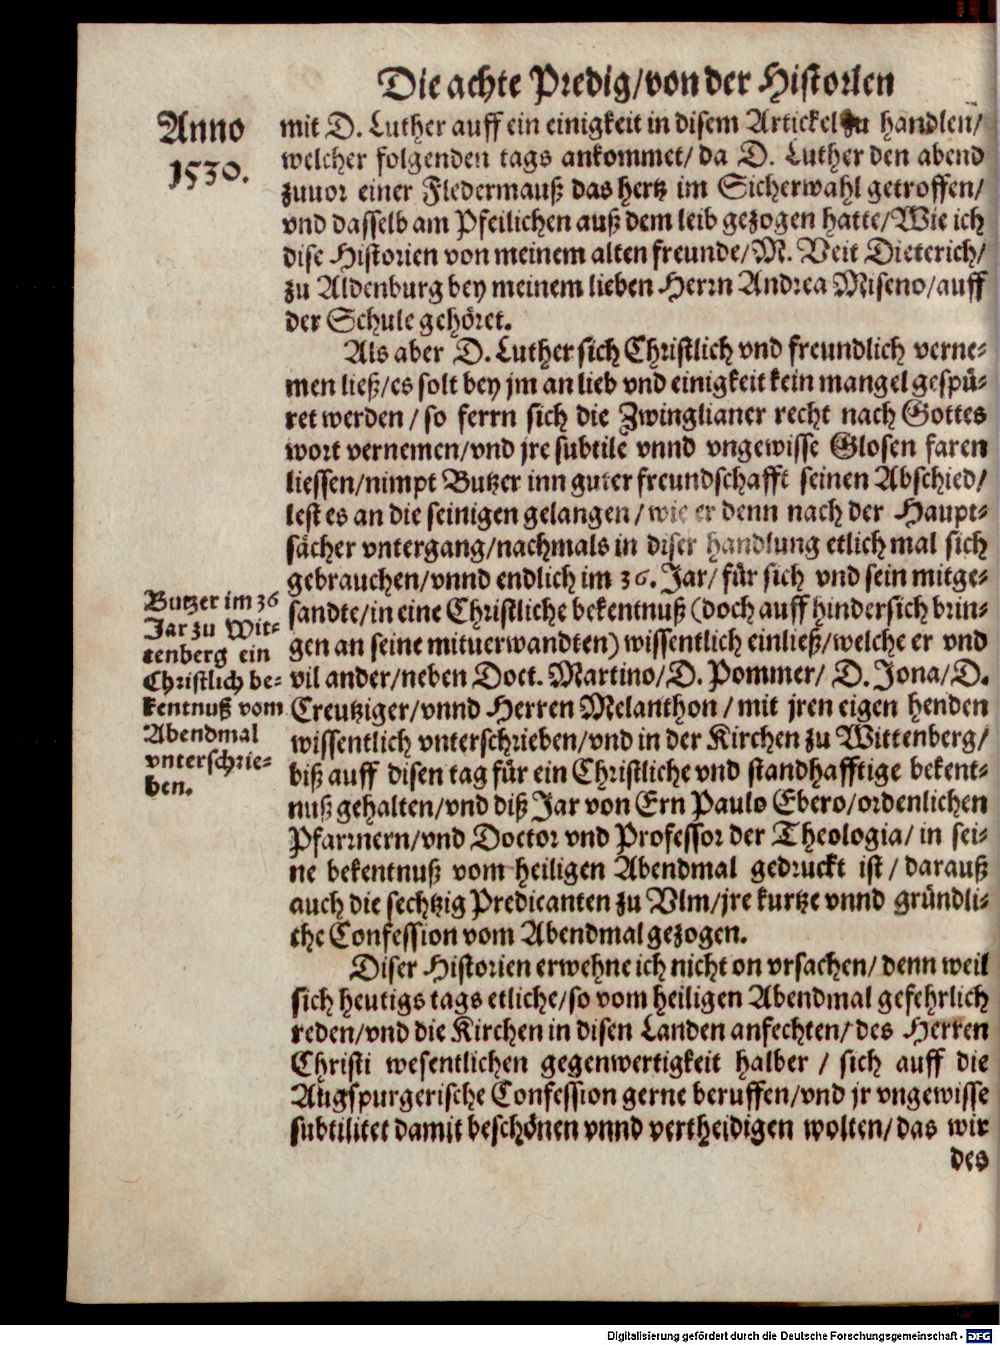 Die achte Predig/von der Historien
Anno
1530.
mit D. Luther auff ein einigkeit in disem Artickel zu handlen/
welcher folgenden tags ankommet/ da D. Luther den abend
zuuor einer Fledermauß das hertz im Sicherwahl getroffen/
vnd dasselb am Pfeilichen auß dem leib gezogen hatte/Wie ich
dise Historien von meinem alten freunde/M. Veit Dieterich/
zu Aldenburg bey meinem lieben Herrn Andrea Miseno/auff
der Schule gehöret.
Als aber D. Luther sich Christlich vnd freundlich verne-
men ließ/es solt bey jm an lieb vnd einigkeit kein mangel gespü-
ret werden/so ferrn sich die Zwinglianer recht nach Gottes
wort vernemen/vnd jre subtile vnnd vngewisse Glosen faren
liessen/nimpt Butzer inn guter freundschafft seinen Abschied/
lest es an die seinigen gelangen/wie er denn nach der Haupt-
sächer vntergang/nachmals in diser handlung etlich mal sich
gebrauchen/vnnd endlich im 36. Jar/ für sich vnd sein mitge-
sandte/in eine Christliche bekentnuß (doch auff hindersich brin-
gen an seine mituerwandten) wissentlich einließ/welche er vnd
vil ander/neben Doct. Martino/D. Pommer/ D. Jona/D.
Creutziger/vnnd Herren Melanthon/mit jren eigen henden
wissentlich vnterschrieben/vnd in der Kirchen zu Wittenberg/
biß auff disen tag für ein Christliche vnd standhafftige bekent-
nuß gehalten/vnd diß Jar von Ern Paulo Ebero/ordenlichen
Pfarrnern/vnd Doctor vnd Professor der Theologia/ in sei-
ne bekentnuß vom heiligen Abendmal gedruckt ist/darauß
auch die sechtzig Predicanten zu Vlm/jre kurtze vnnd gründli-
che Confession vom Abendmal gezogen.
Butzer im 36
Jar zu Wit-
tenberg ein
Christlich be-
kentnuß vom
Abendmal
vnterschrie-
ben.
Diser Historien erwehne ich nicht on vrsachen/denn weil
sich heutigs tags etliche/so vom heiligen Abendmal gefehrlich
reden/vnd die Kirchen in disen Landen anfechten/des Herren
Christi wesentlichen gegenwertigkeit halber/sich auff die
Augspurgerische Confession gerne beruffen/vnd jr vngewisse
subtilitet damit beschönen vnnd vertheidigen wolten/das wir
des
Digitalisierung gefördert durch die Deutsche Forschungsgemeinschaft - DFG